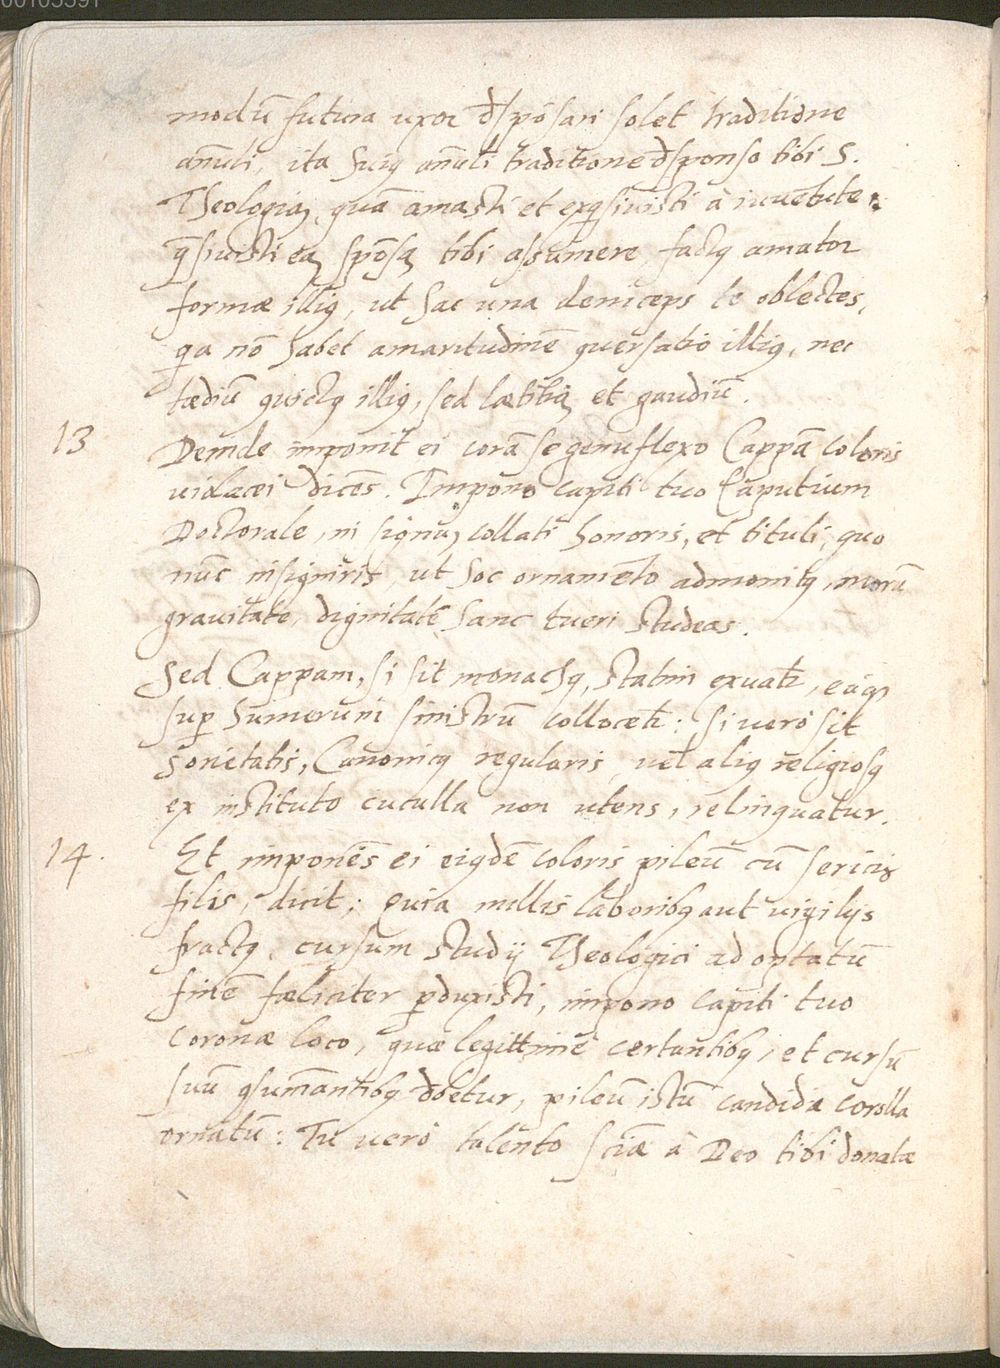 00105591
modū futura uxor đspōsari solet traditione
an̄uli, ita huiꝯ an̄uli traditione đsponso tibi S.
Theologiā, quā amasti et exqsiuisti à iuuētute:
q̄siuisti eā spōsā tibi assumere, factꝯ amator
formæ illiꝯ, ut hac una deinceps te oblectes,
qa nō habet amaritudinē ꝯuersatio illiꝯ, nec
tædiū ꝯuictꝯ illiꝯ, sed lætitiā et gaudiū.
13 Deinde imponit ei corā se genuflexo Cappā coloris
uiolacei dicēs. Impono capiti tuo Caputium
Doctorale, in signuȝ collati honoris, et tituli, quo
nūc insigniris, ut hoc ornamēto admonitꝯ, morū
grauitate, dignitatē hanc tueri studeas.
Sed Cappam, si sit monachꝯ, statim exuatr, eaqȝ
suꝑ humerum sinistrū collocetr: si uero sit
Societatis, Canonicꝯ regularis, uel aliꝯ religiosꝯ
ex instituto cuculla non utens, relinquatur.
14. Et imponēs ei eiꝯdē coloris pileū cū sericis
filis, dicit; Quia nullis laboribꝯ aut vigilijs
fractꝯ, cursum studij Theologici ad optatū
finē fæliciter ꝑduxisti, impono capiti tuo
coronæ loco, quæ legittimè certantibꝯ, et cursū
suū ꝯsum̄antibꝯ đbetur, pileū istū candida corolla
ornatū: Tu uerò talento sciǣ à Deo tibi donatæ